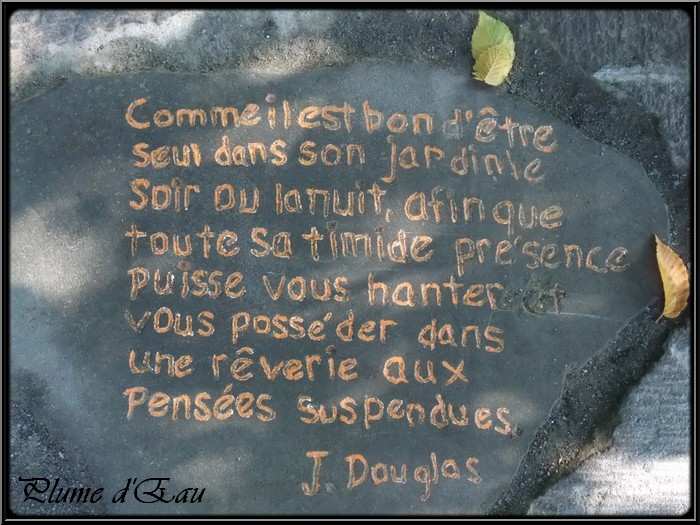 Comme il est bon d'être
seul dans son jardin le
soir ou la nuit, afin que
toute sa timide présence
puisse vous hanter et
vous posséder dans
une rêverie aux
pensées suspendues.
J. Douglas
Plume d'Eau